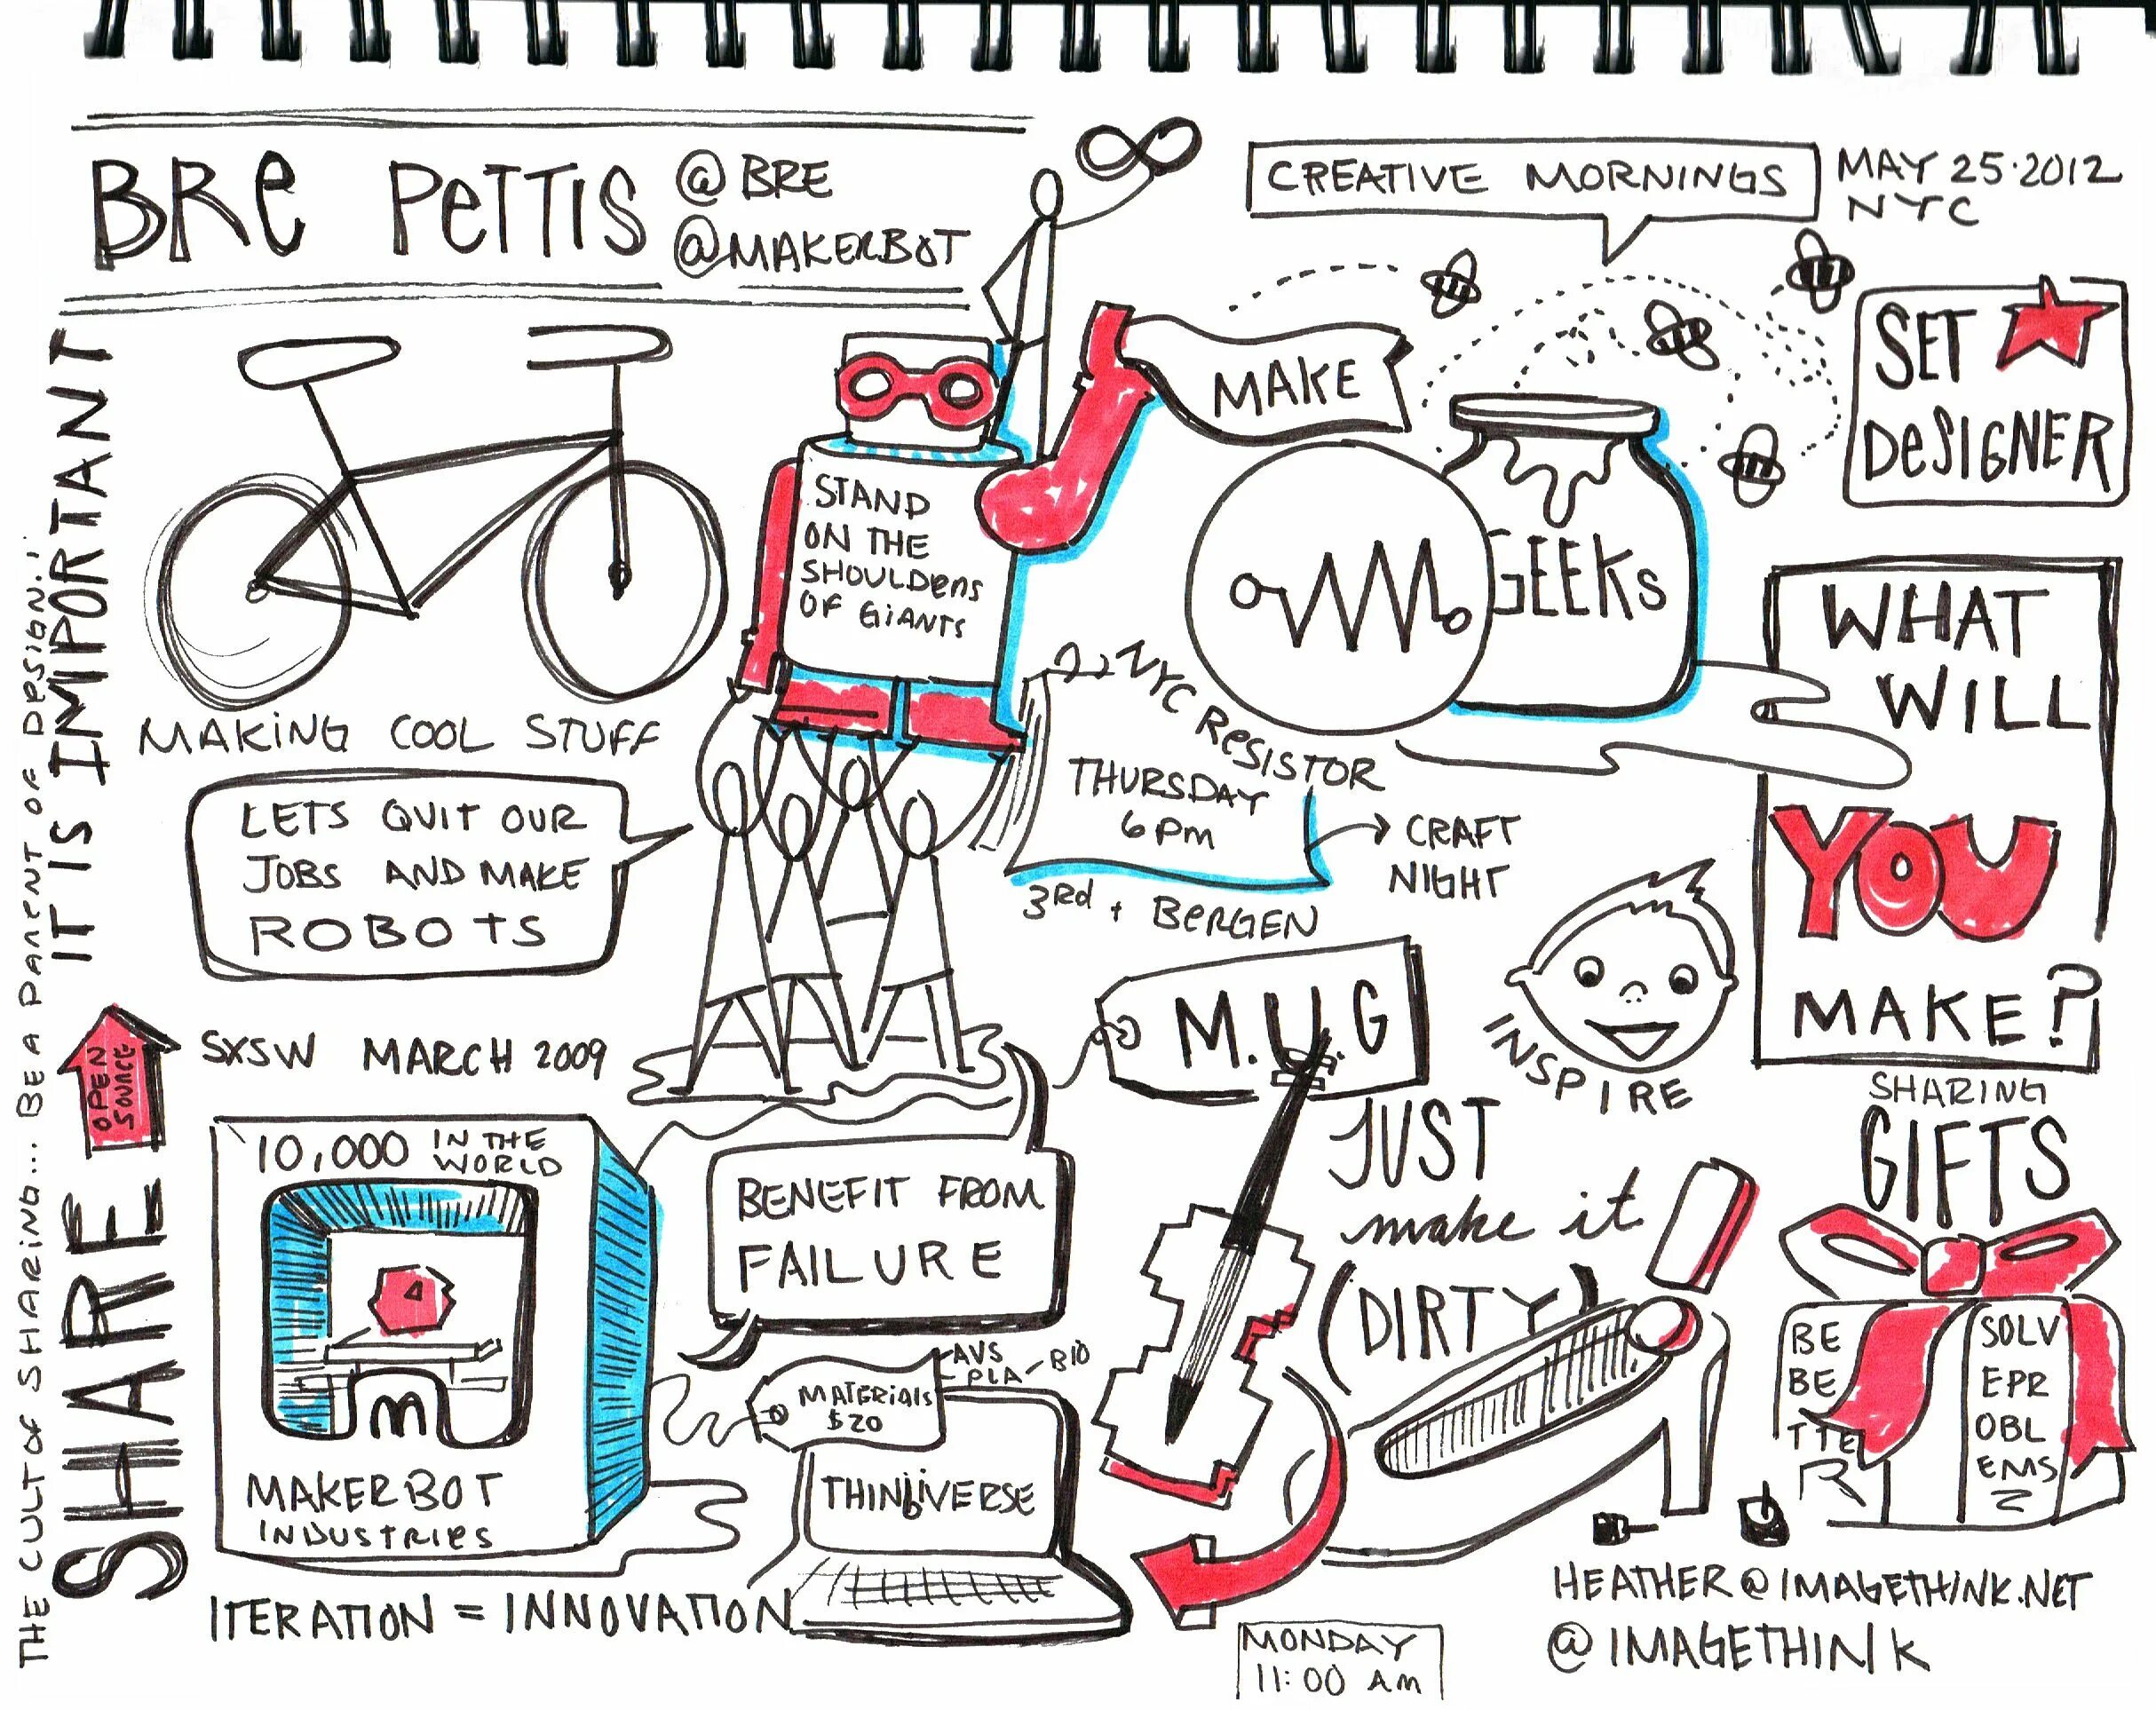 BRE PETTIS
@BRE
@MAKERBOT
CREATIVE MORNINGS
MAY 25·2012
NYC
SET
DESIGNER
MAKE
STAND
ON THE
SHOULDERS
OF GIANTS
GEEKS
WHAT
WILL
YOU
MAKE?
MAKING COOL STUFF
LETS QUIT OUR
JOBS AND MAKE
ROBOTS
NYC RESISTOR
THURSDAY
6PM
CRAFT
NIGHT
3RD + BERGEN
M.U.G
INSPIRE
SXSW MARCH 2009
10,000 IN THE
WORLD
M
MAKERBOT
INDUSTRIES
ITERATION = INNOVATION
BENEFIT FROM
FAILURE
MATERIALS
$20
AVS
PLA - BIO
THINGIVERSE
JUST
make it
(DIRTY)
SHARING
GIFTS
BE
BE
TTE
R
SOLV
EPR
OBL
EMS
HEATHER@IMAGETHINK.NET
@IMAGETHINK
MONDAY
11:00 AM
SHARE
OPEN
SOURCE
IT IS IMPORTANT
THE CULT OF SHARING... BE A PARENT OF DESIGN!